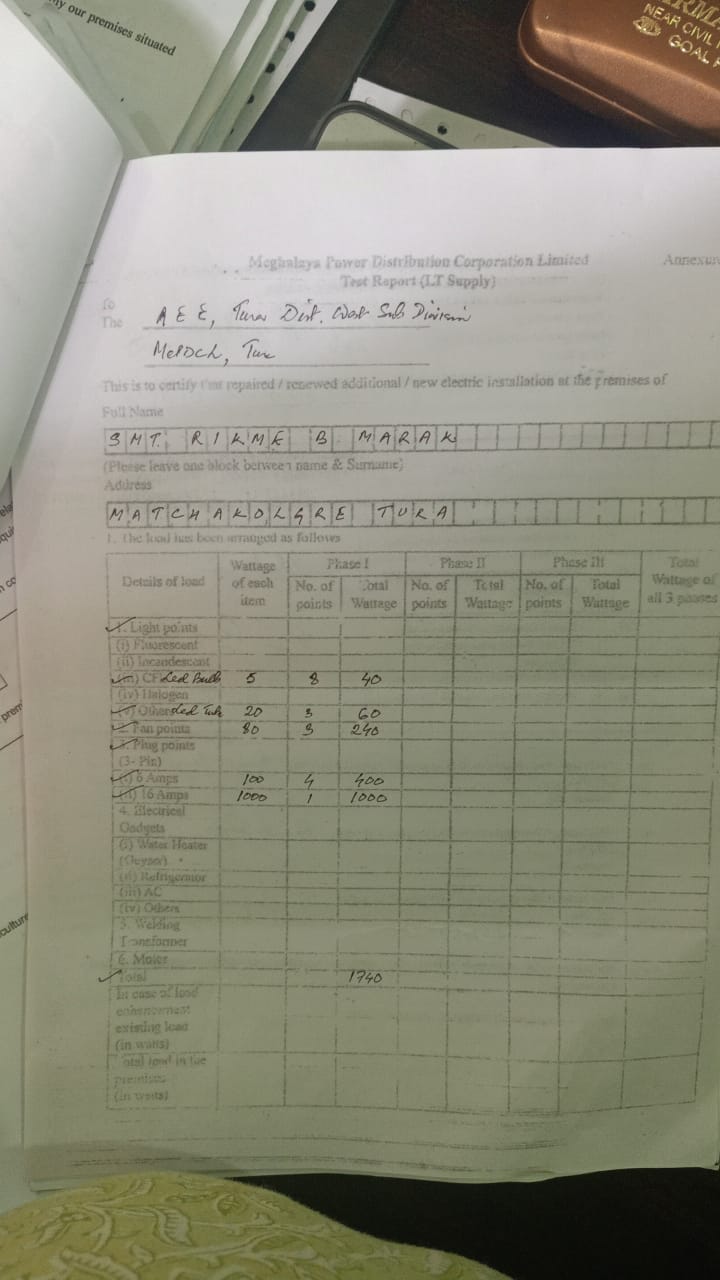 my our premises situated
NEAR CIVIL
GOAL
Meghalaya Power Distribution Corporation Limited
Annexure
Test Report (LT Supply)
To
The
A E E, Tura Dist. West Sub Division
MePDCL, Tura
This is to certify that repaired / renewed additional / new electric installation at the premises of
Full Name
SMT. RIKME B MARAK
(Please leave one block between name & Surname)
Address
MATCHAKOLGRE TURA
1. The load has been arranged as follows
Details of load Wattage of each item Phase I Phase II Phase III Total Wattage of all 3 phases
No. of points Total Wattage No. of points Total Wattage No. of points Total Wattage
1. Light points
(i) Fluorescent
(ii) Incandescent
(iii) CF Led Bulb 5 8 40
(iv) Halogen
(v) Others Led Tube 20 3 60
2. Fan points 80 3 240
3. Plug points
(3- Pin)
(i) 6 Amps 100 4 400
(ii) 16 Amps 1000 1 1000
4. Electrical
Gadgets
(i) Water Heater
(Geyser)
(ii) Refrigerator
(iii) AC
(iv) Others
5. Welding
Transformer
6. Motor
Total 1740
In case of load
enhancement
existing load
(in watts)
Total load in the
premises
(in watts)